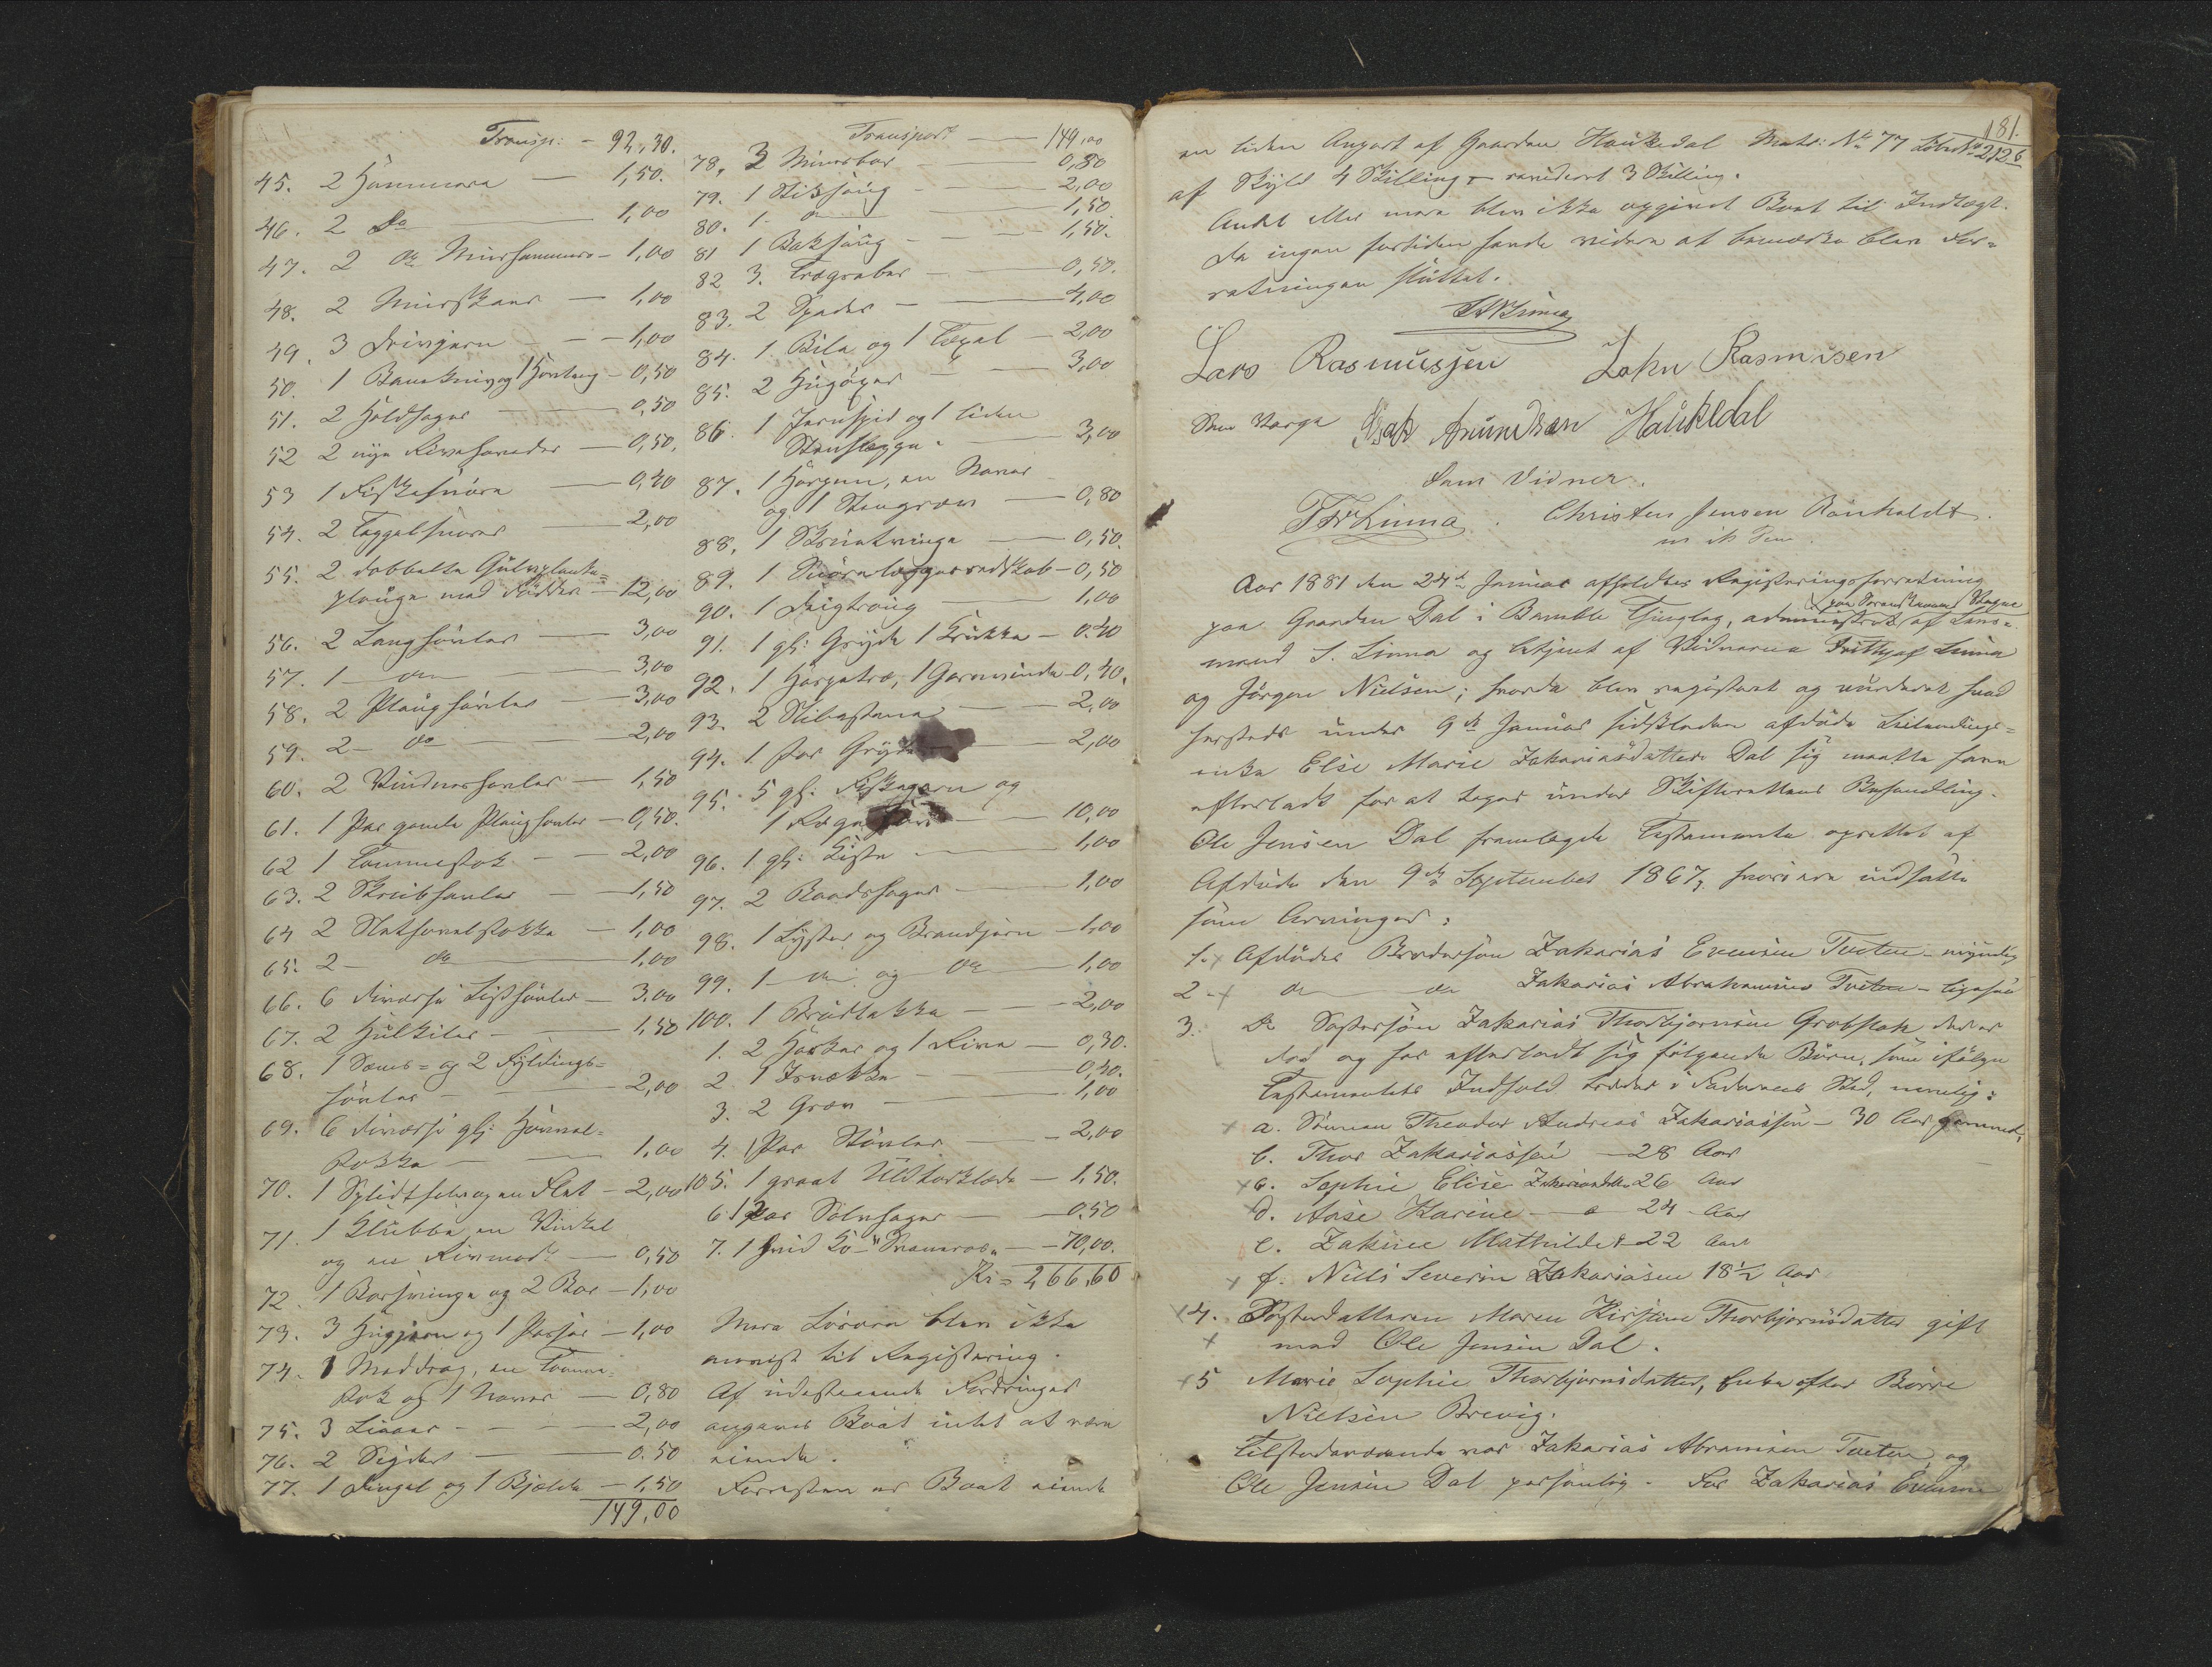 Transp: - 92,30.
45. 2 Hammere - 1,50.
46. 2 Do - 1,00
47. 2 do Murhammere - 1,00
48. 2 Murskeer - 1,00
49. 3 Drivjern - 1,00
50. 1 Baandkniv og 1 - 0,50
51. 2 Holdhager - 0,50
52 2 nye Rivehoveder - 0,50.
53 1 Fiskesnøre - 0,40
54. 2 - 2,00
55. 2 dobbelte Gulvplanke=
plouge med - 12,00
56. 2 Langhøvler - 3,00
57. 1 do 3,00
58. 2 Ploughøvler - 3,00
59. 2 - do - 2,00
60. 2 Vindueshøvler - 1,50
61. 1 Par gamle Ploughøvler - 0,50.
62 1 Tommestok - 2,00
63. 2 Skrubhøvler - 1,50
64 2 Slethøvelstokke - 1,00
65. 2 - do 1,00
66. 6 diverse Listhøvler - 3,00
67. 2 Hulkiler - 1,50
68. 1 Sims= og 2 Fyldings=
høvler - 2,00
69. 6 diverse gl: Høvvel=
stokke - 1,00
70. 1 og en Flat - 2,00
71. 1 Klubbe, en Vinkel
og en - 0,50
72. 1 Borsvinge og 2 Bor - 1,00
73. 3 Hugjern og 1 Passer - 1,00
74. 1 Meddrag, en Tomme=
stok og 1 Naver - 0,80
75. 3 Liaaer - 2,00
76. 2 Sigder - 0.50
77. 1 og 1 Bjelde - 1,50
149,00
Transport - 149,00
78. 3 Minerbor - 0,80
79. 1 Stiksaug - 2,00
80. 1 - do 1,50
81 1 Baksaug - 1,50.
82 3. Trægreber - 0,50.
83. 2 Spader - 4,00
84. 1 Bile og 1 Texel - 2,00
85. 2 Hugøxer - 3,00
86. 1 Jernspid og 1 liden
Stenslægge - 3,00
87. 1 Harpun, en Naver
og 1 - 0,80
88. 1 Skruetvinge - 0,50.
89. 1 - 0,50
90. 1 Deigtroug - 1,00
91. 1 gl: Gryde 1 Krukke - 0.40
92. 1 Harpetræ, 1 Garnvinde - 0,40.
93. 2 Slibestene - 2,00
94. 1 Par - 2,00
95. 5 gl: Fiskegarn og
1 - 10,00
96. 1 gl: Kiste - 1,00
97. 2 Baadshager - 1,00
98. 1 Lyster og Brandjern - 1,00
99. 1 - do og do 1,00
100. 1 - 2,00
1. 2 Harker og 1 Rive - 0,30.
2 1 - 0,40.
3. 2 Green - 1,00
4. 1 Par Støvler - 2,00
105. 1 graat Uldtørklæde - 1,50.
6. 1 Par - 0.50
7. 1 hvid Ko "Svaneros" - 70,00.
Kr = 266,60
Mere Løsøre blev ikke
anvist til Registering.
Af udestaaende Fordringer
angaves Boet intet at være
eiende.
Forresten er Boet eiende
181.
en liden Anpart af Gaarden Haukedal Matr: No 77 Løbe No 212b
af Skyld 4 Skilling, revideret 3 Skilling.
Andet eller mere blev ikke opgivet Boet til Indtægt.
Da ingen fortiden havde videre at bemærke blev For=
retningen sluttet.
Lars Rasmussen John Rasmusen
Som Værge Isak Amundsen Haukedal
Som Vidner.
F Linna. Christen Jensen Rønholdt.
m ih Pen.
Aar 1881 den 24de Januar afholdtes Registeringsforretning
paa Gaarden Dal i Bamble Thinglag, administreret af Lens=
mand S. Linna og betjent af Vidnerne Frithjof Linna
og Jørgen Nielsen; hvorda blev registeret og vurderet hvad
hersteds under 9de Januar sidstleden afdøde Leilændings=
enke Else Marie Zakariasdatter Dal sig maatte have
efterladt for at tages under Skifterettens Behandling.
Ole Jensen Dal fremlagde Testamente oprettet af
Afdøde den 9de September 1867, hvori ere indsatte
som Arvinger:
1. Afdødes Brodersøn Zakarias Evensen Tveten - myndig
2 - do do Zakarias Abrahamsen Tveten - ligesaa
3. Do Søstersøn Zakarias Thorbjørnsen Grobstok der er
død og har efterladt sig følgende Børn, som ifølge
Testamentets Indhold træder i Faderens Sted, nemlig:
a. Simen Theodor Andreas Zakariassen - 30 Aar gammel,
b. Thor Zakariassen - 28 Aar
c. Sophie Elise Zakariasdtr 26 Aar
d. Aase Karine - do 24 Aar
e. Zakine Mathilde - 22 Aar
f. Niels Severin Zakariasen 18 1/2 Aar
4. Søsterdatteren Maren Kirstine Thorbjørnsdatter gift
med Ole Jensen Dal.
5 Marie Sophie Thorbjørnsdatter, Enke efter Børre
Nielsen Brevig.
Tilstedeværende var Zakarias Abramsen Tveten og
Ole Jensen Dal personlig. For Zakarias Evensen